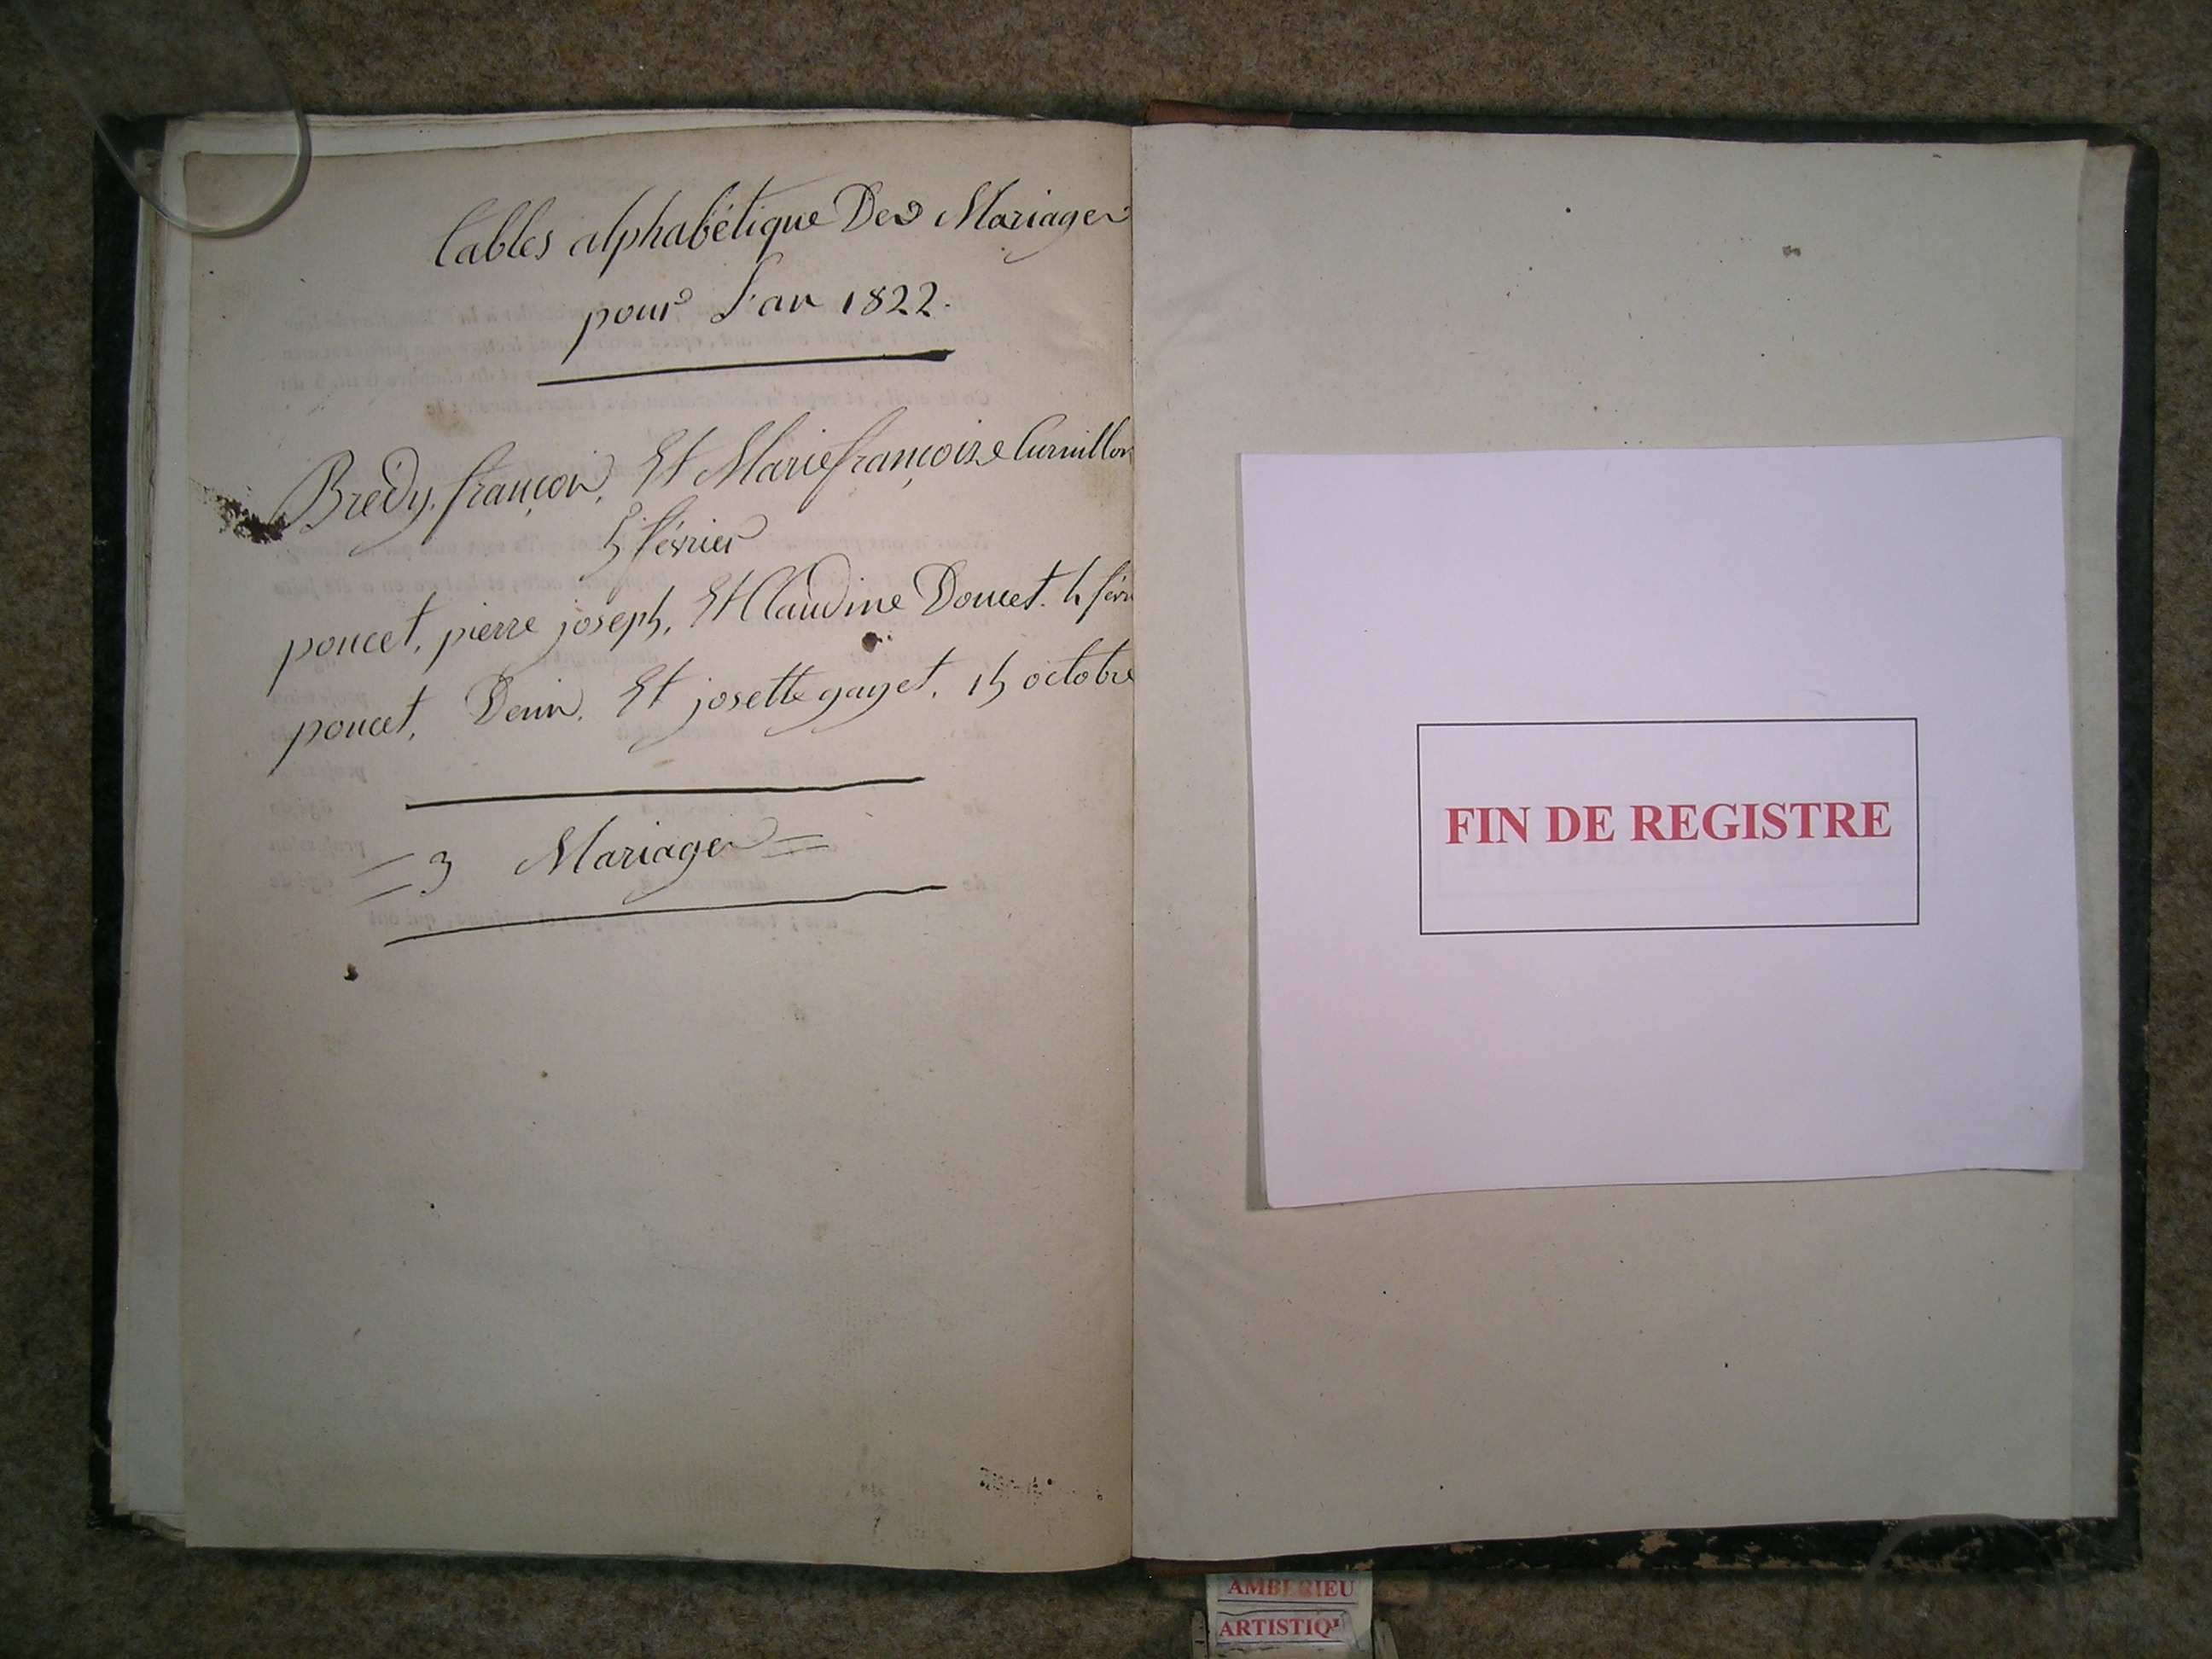 Tables alphabétique Des Mariages
pour L'an 1822.
Brédy, françois, Et Marie françoise Curnillon
5 février
poncet, pierre joseph, Et Claudine Doucet. 5 févri
poncet, Denis, Et josette gayet, 15 octobre
= 3 Mariages =
FIN DE REGISTRE
AMBERIEU
ARTISTIQU